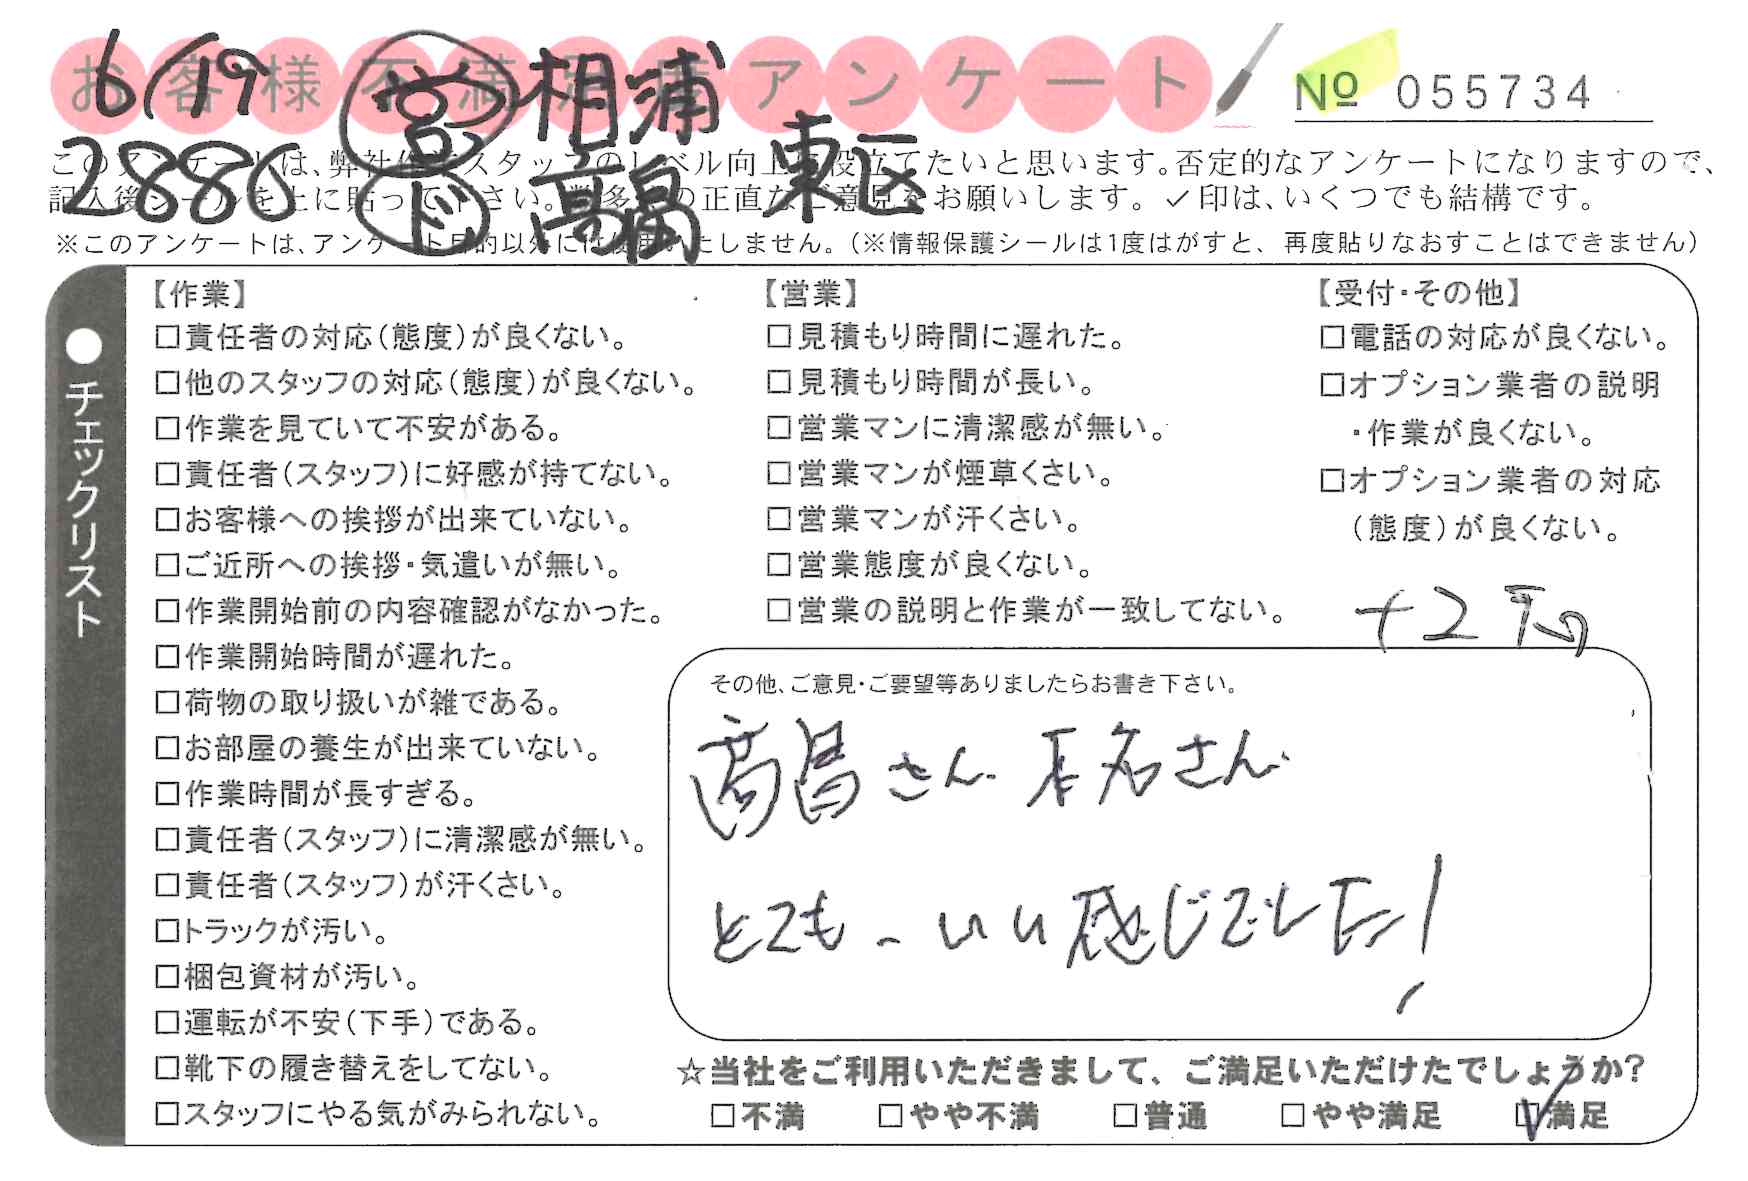 お客様不満足度アンケート
6/19 営 相浦
№ 055734
2886 ド 高畠 東区
このアンケートは、弊社作業スタッフのレベル向上に役立てたいと思います。否定的なアンケートになりますので、
記入後シールを上に貼って下さい。数多くの正直なご意見をお願いします。✓印は、いくつでも結構です。
※このアンケートは、アンケート目的以外には使用いたしません。(※情報保護シールは1度はがすと、再度貼りなおすことはできません)
●チェックリスト
【作業】
□責任者の対応(態度)が良くない。
□他のスタッフの対応(態度)が良くない。
□作業を見ていて不安がある。
□責任者(スタッフ)に好感が持てない。
□お客様への挨拶が出来ていない。
□ご近所への挨拶・気遣いが無い。
□作業開始前の内容確認がなかった。
□作業開始時間が遅れた。
□荷物の取り扱いが雑である。
□お部屋の養生が出来ていない。
□作業時間が長すぎる。
□責任者(スタッフ)に清潔感が無い。
□責任者(スタッフ)が汗くさい。
□トラックが汚い。
□梱包資材が汚い。
□運転が不安(下手)である。
□靴下の履き替えをしてない。
□スタッフにやる気がみられない。
【営業】
□見積もり時間に遅れた。
□見積もり時間が長い。
□営業マンに清潔感が無い。
□営業マンが煙草くさい。
□営業マンが汗くさい。
□営業態度が良くない。
□営業の説明と作業が一致してない。
【受付・その他】
□電話の対応が良くない。
□オプション業者の説明
・作業が良くない。
□オプション業者の対応
(態度)が良くない。
+2
その他、ご意見・ご要望等ありましたらお書き下さい。
高畠さん さん
とても、いい感じでした!
☆当社をご利用いただきまして、ご満足いただけたでしょうか?
□不満 □やや不満 □普通 □やや満足 ☑満足